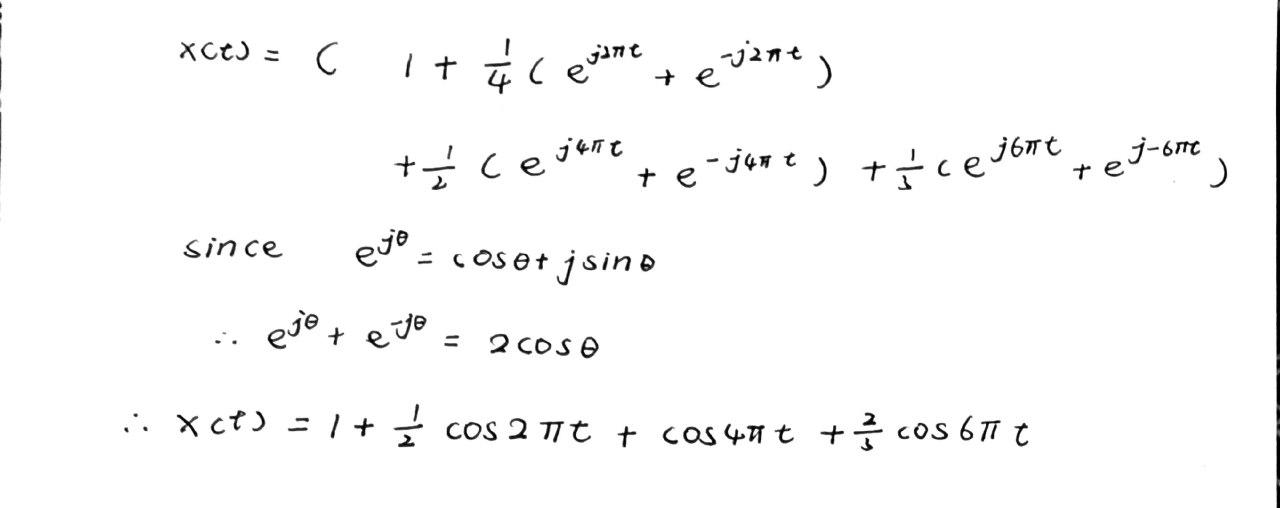 x(t) = ( 1 + 1/4 ( e^{j2πt} + e^{-j2πt} )
+ 1/2 ( e^{j4πt} + e^{-j4πt} ) + 1/3 ( e^{j6πt} + e^{j-6πt} )
since e^{jθ} = cosθ + jsinθ
∴ e^{jθ} + e^{-jθ} = 2cosθ
∴ x(t) = 1 + 1/2 cos2πt + cos4πt + 2/3 cos6πt